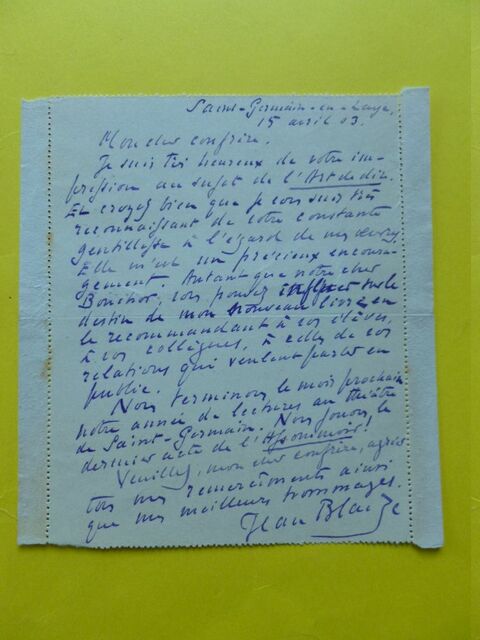 Saint-Germain-en-Laye,
15 avril 03.
Mon cher confrère.
Je suis très heureux de votre im-
pression au sujet de l'Art de dire.
Et croyez bien que je vous suis très
reconnaissant de votre constante
gentillesse à l'égard de mes
Elle m'est un précieux encoura-
gement. Autant que notre cher
Bouchor, vous pouvez influer sur le
destin de mon nouveau livre, en
le recommandant à vos élèves,
à vos collègues, à celles de vos
relations qui veulent parler en
public.
Nous terminons le mois prochain
notre année de lectures au théâtre
de Saint-Germain. Nous jouons le
dernier acte de l'Assommoir!
Veuillez, mon cher confrère, agréer
tous mes remerciements ainsi
que mes meilleurs hommages.
Jean Blaize